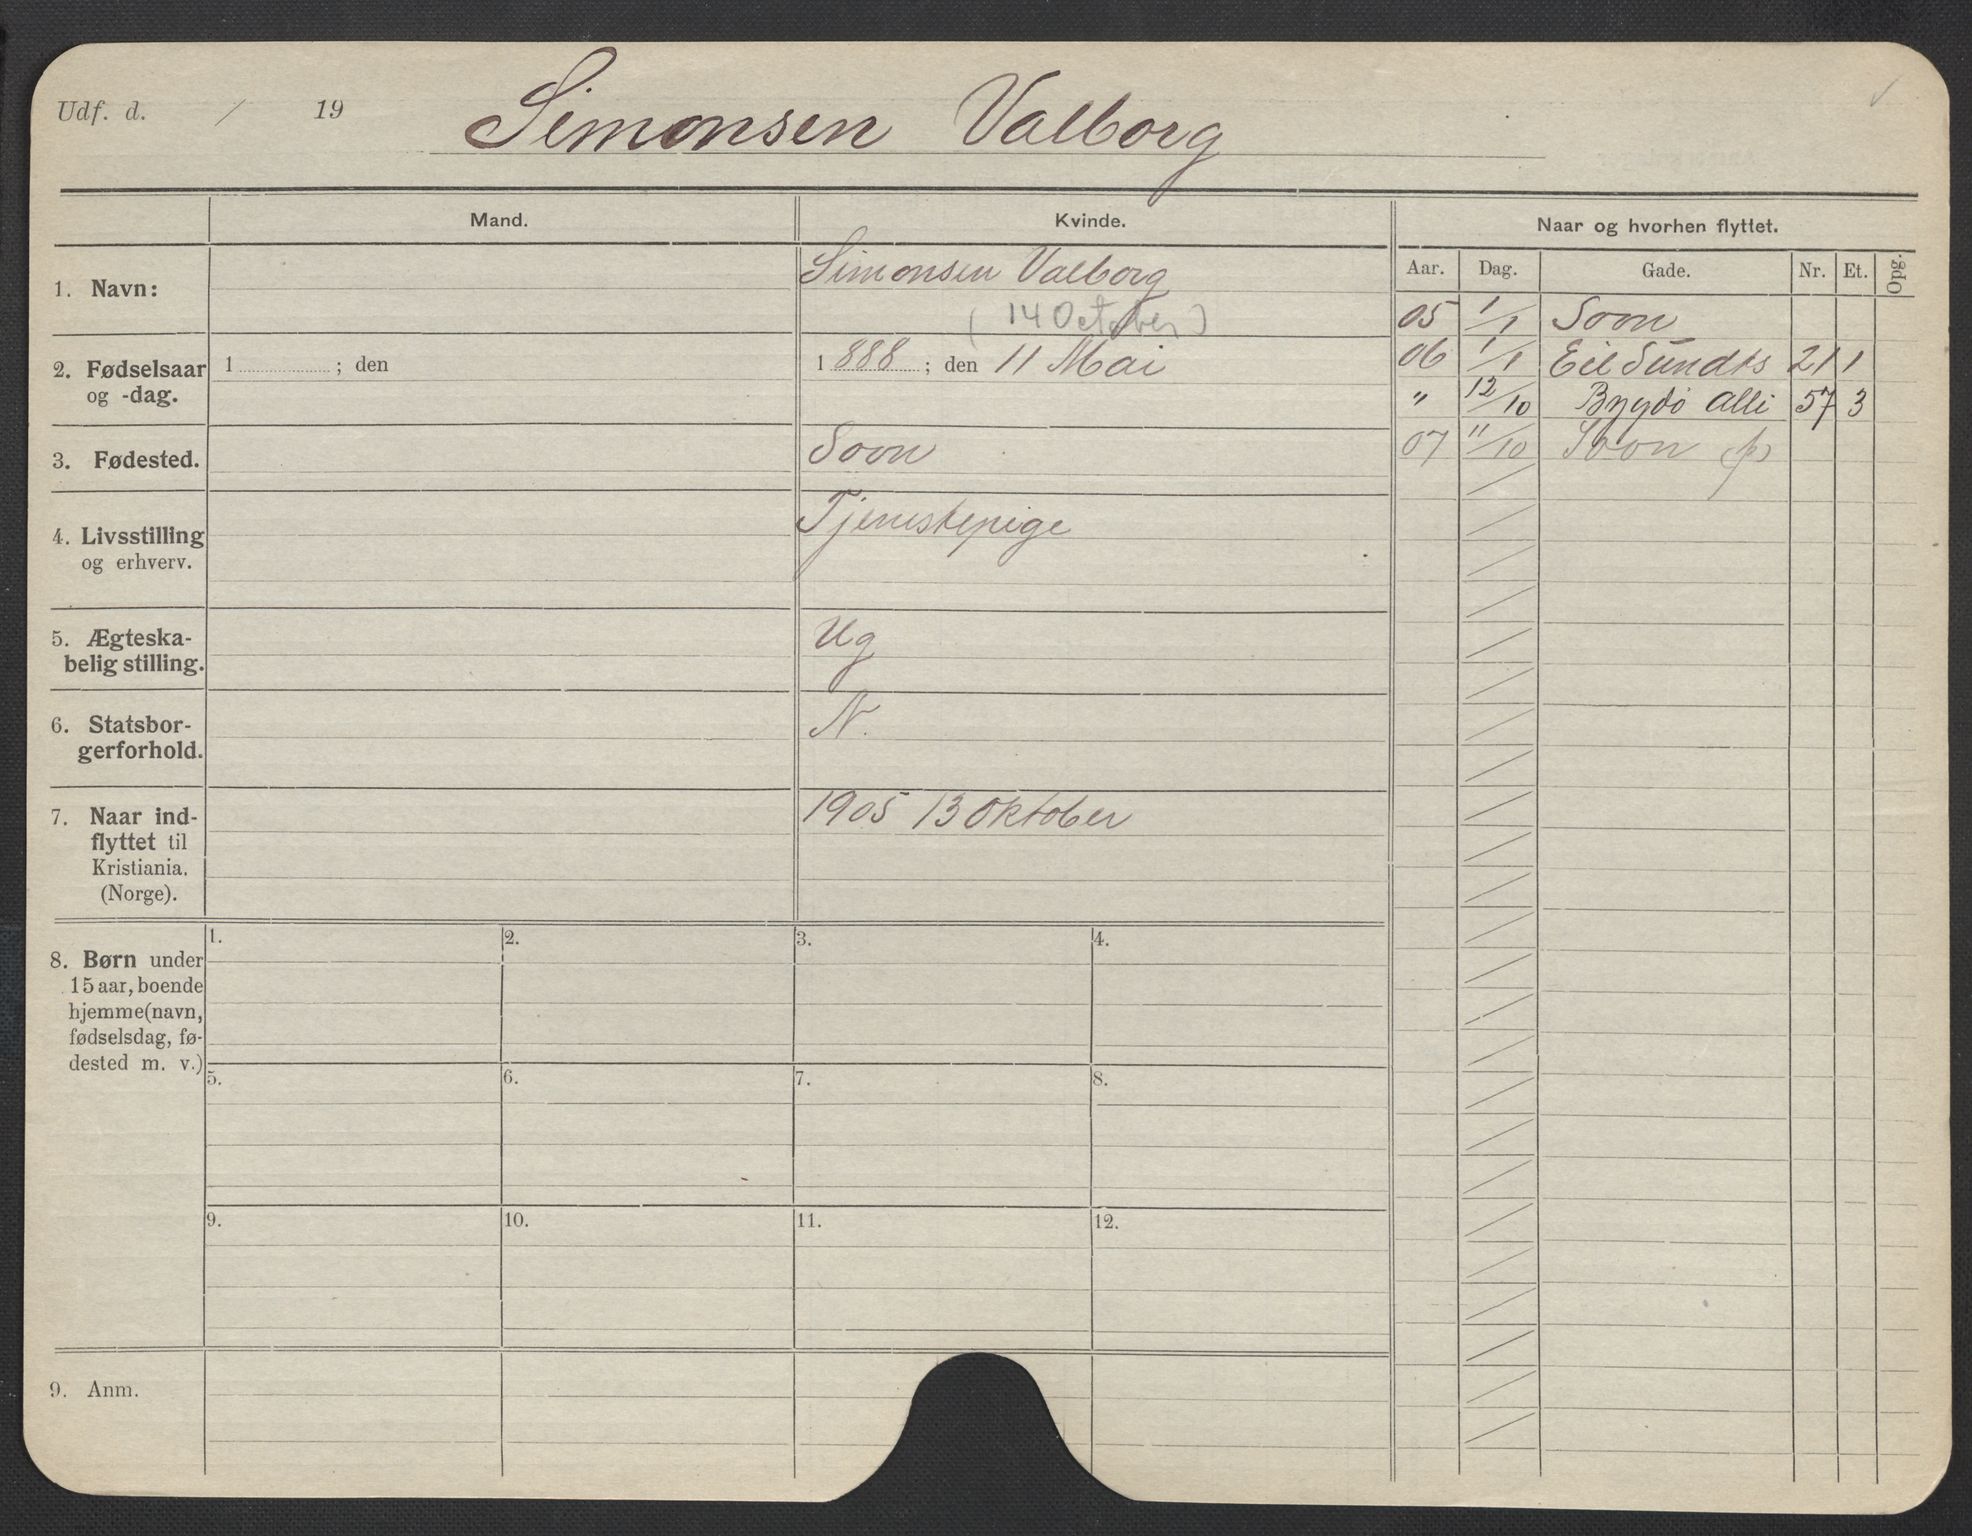 Udf. d. / 19
Simonsen Valborg
Mand.
Kvinde.
Naar og hvorhen flyttet.
Aar. Dag. Gade. Nr. Et. Opg.
1. Navn:
Simonsen Valborg
(14 October)
2. Fødselsaar
og -dag.
1 ; den
1 888 ; den 11 Mai
3. Fødested.
Soon
4. Livsstilling
og erhverv.
Tjenestepige
5. Ægteska-
belig stilling.
Ug
6. Statsbor-
gerforhold.
N.
7. Naar ind-
flyttet til
Kristiania.
(Norge).
1905 13 Oktober
8. Børn under
15 aar, boende
hjemme (navn,
fødselsdag, fø-
dested m. v.)
1. 2. 3. 4.
5. 6. 7. 8.
9. 10. 11. 12.
9. Anm.
05 1/1 Soon
06 1/1 Eil Sundts 21 1
" 12/10 Bygdö Alli 57 3
07 11/10 Soon (p)